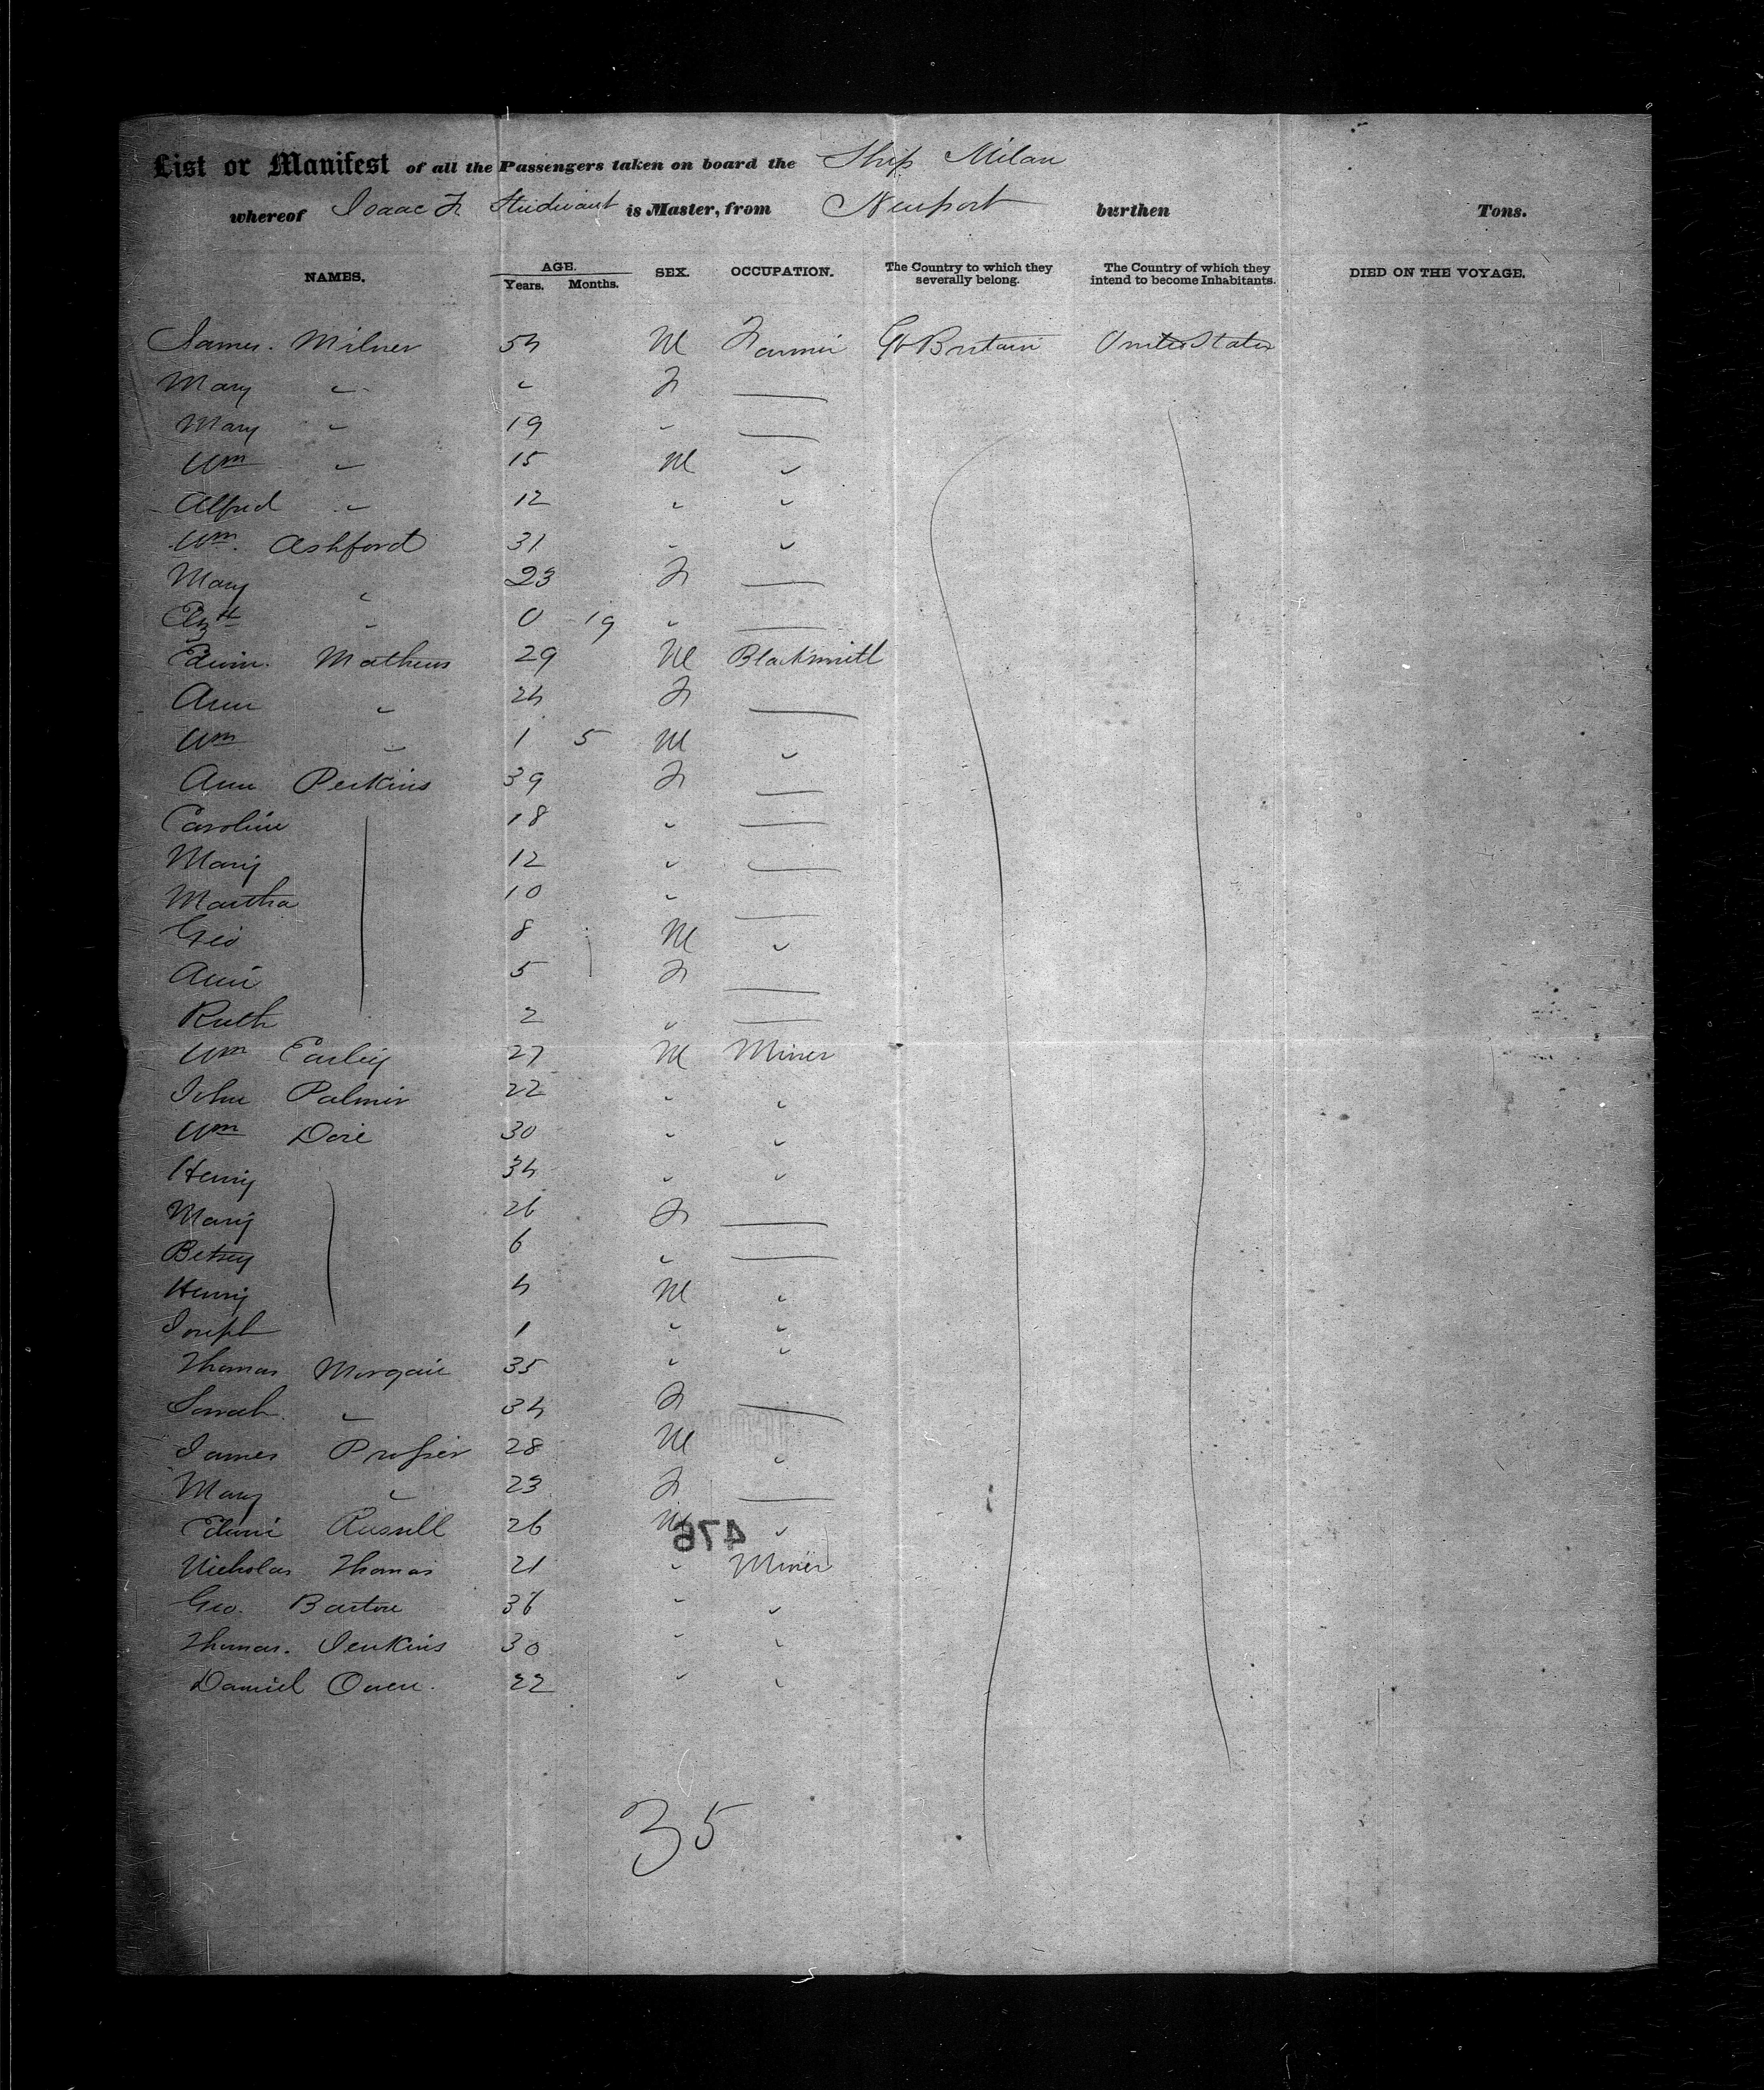 List or Manifest of all the Passengers taken on board the Ship Milan
whereof Isaac F. Studivant is Master, from Newport burthen Tons.
NAMES. AGE. Years. Months. SEX. OCCUPATION. The Country to which they severally belong. The Country of which they intend to become Inhabitants. DIED ON THE VOYAGE.
James. Milner 54 M Farmer Gt Britain United States
Mary " " F —
Mary " 19 " —
Wm " 15 M "
Alfred " 12 " "
Wm. Ashford 31 " "
Mary " 23 F —
Elizth " 0 19 " —
Edwin. Mathews 29 M Blacksmith
Ann " 24 F —
Wm " 1 5 M "
Ann Perkins 39 F —
Caroline 18 " —
Mary 12 " —
Martha 10 " —
Geo 8 M "
Ann 5 F —
Ruth 2 " —
Wm Earley 27 M Miner
John Palmer 22 " "
Wm Dore 30 " "
Henry 34 " "
Mary 26 F —
Betsey 6 " —
Henry 4 M "
Joseph 1 " "
Thomas Morgan 35 " "
Sarah " 34 F —
James Prosser 28 M "
Mary " 23 F —
Edwin Russell 26 M "
476
Nicholas Thomas 21 " Miner
Geo. Barton 36 " "
Thomas. Jenkins 30 " "
Daniel Owen. 22 " "
35